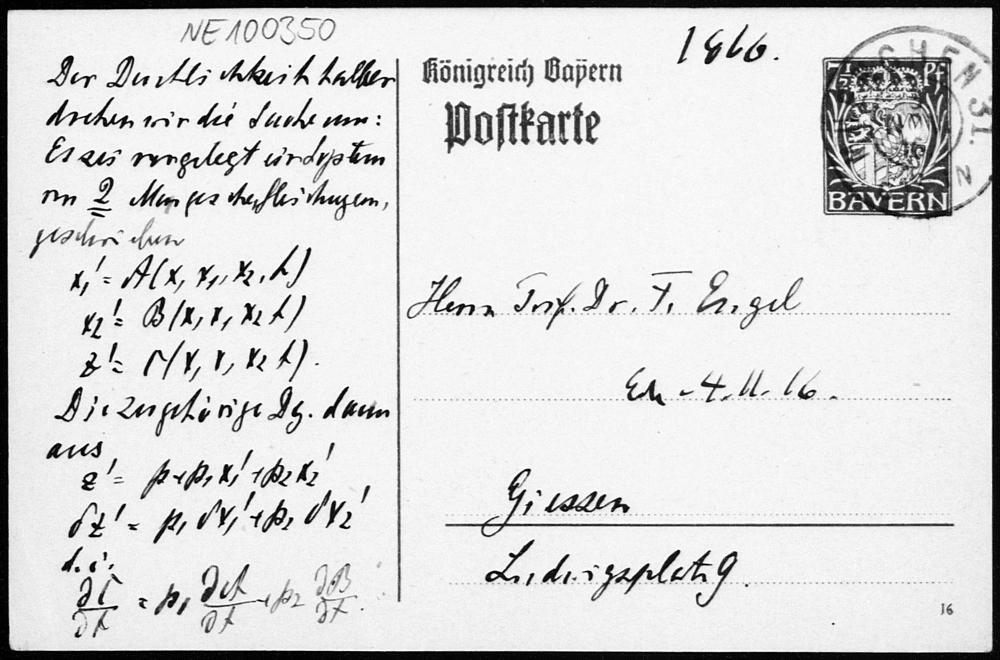 NE100350
Der Deutlichkeit halber
drehen wir die Sache um:
Es sei vorgelegt ein System
von 2 Mongeschen Gleichungen,
geschrieben
x₁' = A(x, x₁, x₂, t)
x₂' = B(x, x₁ x₂ t)
z' = Γ(x, x₁ x₂ t).
Die zugehörige Dg. dann
aus
z' = p + p₁x₁' + p₂x₂'
δz' = p₁ δx₁' + p₂ δx₂'
d. i.
∂Γ/∂t = p₁ ∂A/∂t + p₂ ∂B/∂t.
Königreich Bayern
Postkarte
7½ PF
BAYERN
CHEN 31.
2
Herrn Prof. Dr. F. Engel
4. 11. 16.
Giessen
Ludwigsplatz 9.
16